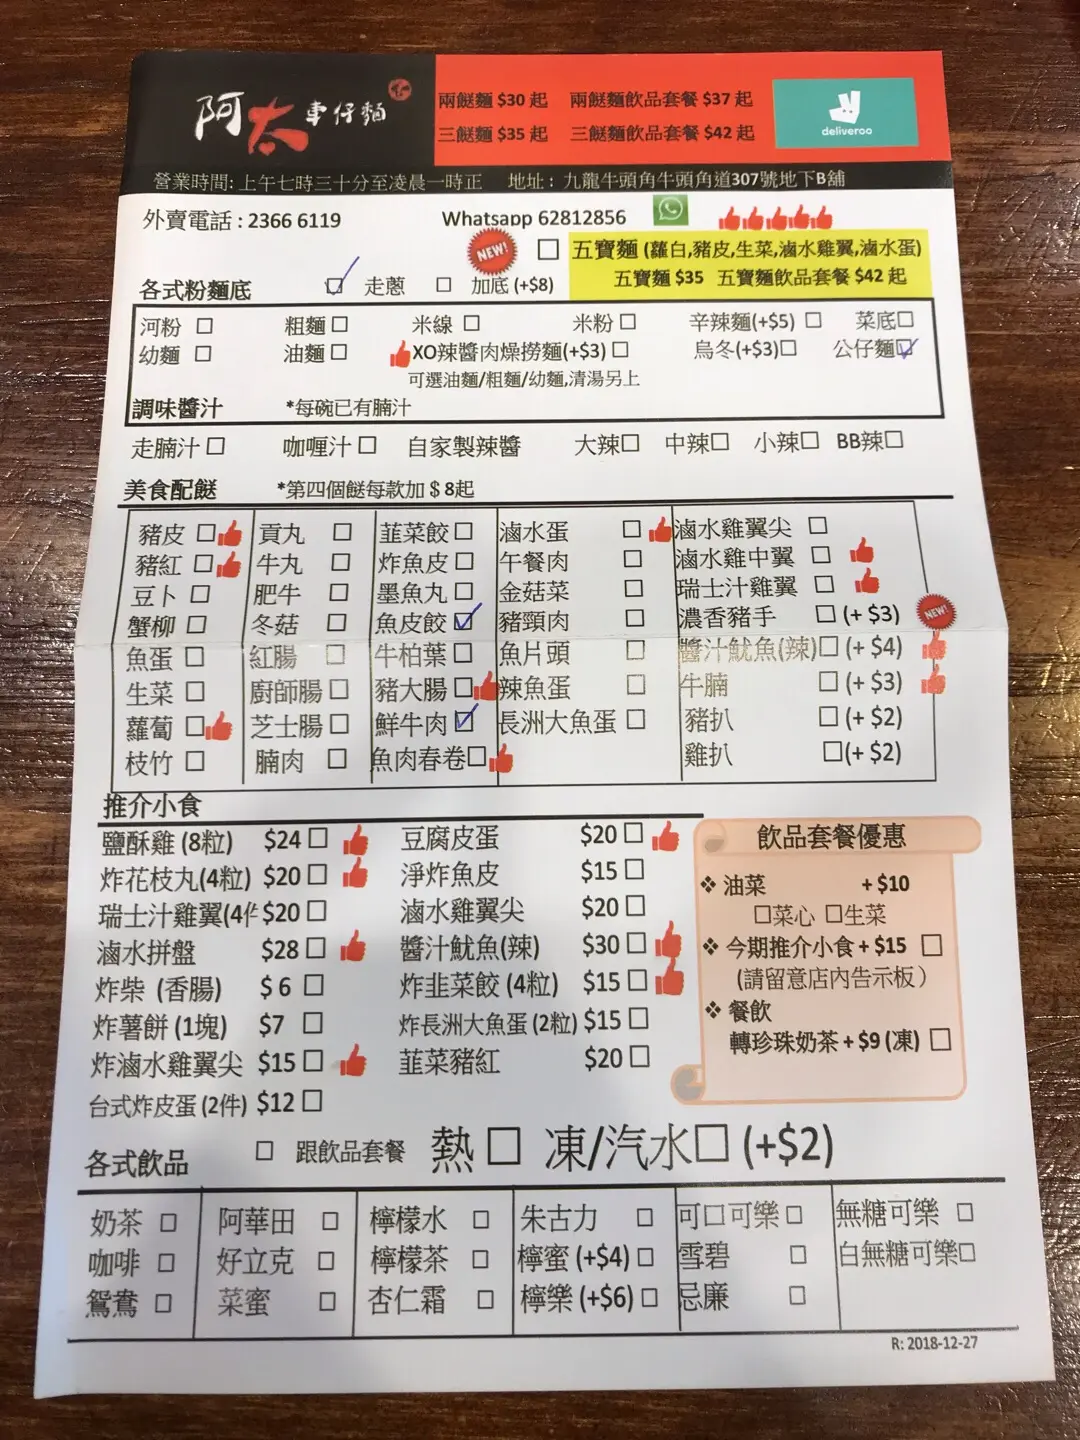 阿太車仔麵
兩餸麵 $30 起 兩餸麵飲品套餐 $37 起
三餸麵 $35 起 三餸麵飲品套餐 $42 起
deliveroo
營業時間: 上午七時三十分至凌晨一時正 地址 : 九龍牛頭角牛頭角道307號地下B舖
外賣電話 : 2366 6119 Whatsapp 62812856
NEW! □ 五寶麵 (蘿白,豬皮,生菜,滷水雞翼,滷水蛋)
五寶麵 $35 五寶麵飲品套餐 $42 起
各式粉麵底 ☑ 走蔥 □ 加底 (+$8)
河粉 □ 粗麵 □ 米線 □ 米粉 □ 辛辣麵(+$5) □ 菜底 □
幼麵 □ 油麵 □ XO辣醬肉燥撈麵(+$3) □ 烏冬(+$3) □ 公仔麵 ☑
可選油麵/粗麵/幼麵,清湯另上
調味醬汁 *每碗已有腩汁
走腩汁 □ 咖喱汁 □ 自家製辣醬 大辣 □ 中辣 □ 小辣 □ BB辣 □
美食配餸 *第四個餸每款加 $ 8起
豬皮 □ 貢丸 □ 韮菜餃 □ 滷水蛋 □ 滷水雞翼尖 □
豬紅 □ 牛丸 □ 炸魚皮 □ 午餐肉 □ 滷水雞中翼 □
豆卜 □ 肥牛 □ 墨魚丸 □ 金菇菜 □ 瑞士汁雞翼 □
蟹柳 □ 冬菇 □ 魚皮餃 ☑ 豬頸肉 □ 濃香豬手 □ (+ $3) NEW!
魚蛋 □ 紅腸 □ 牛柏葉 □ 魚片頭 □ 醬汁魷魚(辣) □ (+ $4)
生菜 □ 廚師腸 □ 豬大腸 □ 辣魚蛋 □ 牛腩 □ (+ $3)
蘿蔔 □ 芝士腸 □ 鮮牛肉 ☑ 長洲大魚蛋 □ 豬扒 □ (+ $2)
枝竹 □ 腩肉 □ 魚肉春卷 □ 雞扒 □ (+ $2)
推介小食
鹽酥雞 (8粒) $24 □ 豆腐皮蛋 $20 □
炸花枝丸(4粒) $20 □ 淨炸魚皮 $15 □
瑞士汁雞翼(4件 $20 □ 滷水雞翼尖 $20 □
滷水拼盤 $28 □ 醬汁魷魚(辣) $30 □
炸柴 (香腸) $ 6 □ 炸韭菜餃 (4粒) $15 □
炸薯餅 (1塊) $7 □ 炸長洲大魚蛋 (2粒) $15 □
炸滷水雞翼尖 $15 □ 韮菜豬紅 $20 □
台式炸皮蛋 (2件) $12 □
飲品套餐優惠
❖ 油菜 + $10
□菜心 □生菜
❖ 今期推介小食 + $15 □
(請留意店內告示板 )
❖ 餐飲
轉珍珠奶茶 + $9 (凍) □
各式飲品 □ 跟飲品套餐 熱 □ 凍/汽水 □ (+$2)
奶茶 □ 阿華田 □ 檸檬水 □ 朱古力 □ 可口可樂 □ 無糖可樂 □
咖啡 □ 好立克 □ 檸檬茶 □ 檸蜜 (+$4) □ 雪碧 □ 白無糖可樂 □
鴛鴦 □ 菜蜜 □ 杏仁霜 □ 檸樂 (+$6) □ 忌廉 □
R: 2018-12-27